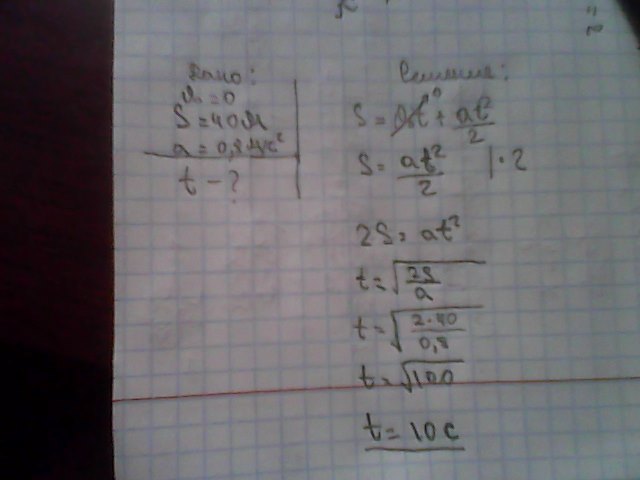 Дано:
v₀ = 0
S = 40м
a = 0,8 м/с²
t - ?
Решение:
S = v₀t + at²/2
S = at²/2 | · 2
2S = at²
t = √(2S/a)
t = √(2·40/0,8)
t = √100
t = 10 с